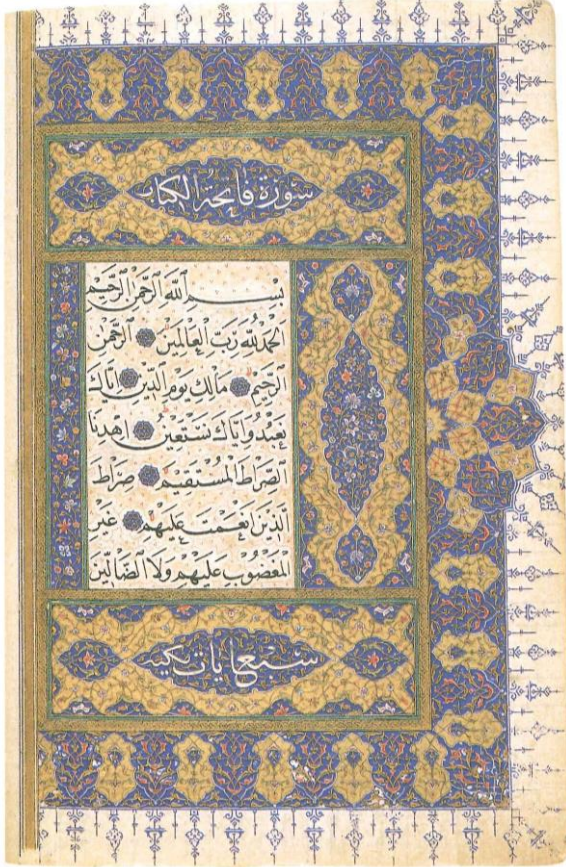 سورة فاتحة الكتاب
بسم الله الرحمن الرحيم
الحمد لله رب العالمين الرحمن
الرحيم مالك يوم الدين اياك
نعبد واياك نستعين اهدنا
الصراط المستقيم صراط
الذين انعمت عليهم غير
المغضوب عليهم ولا الضالين
سبع ايات مكية